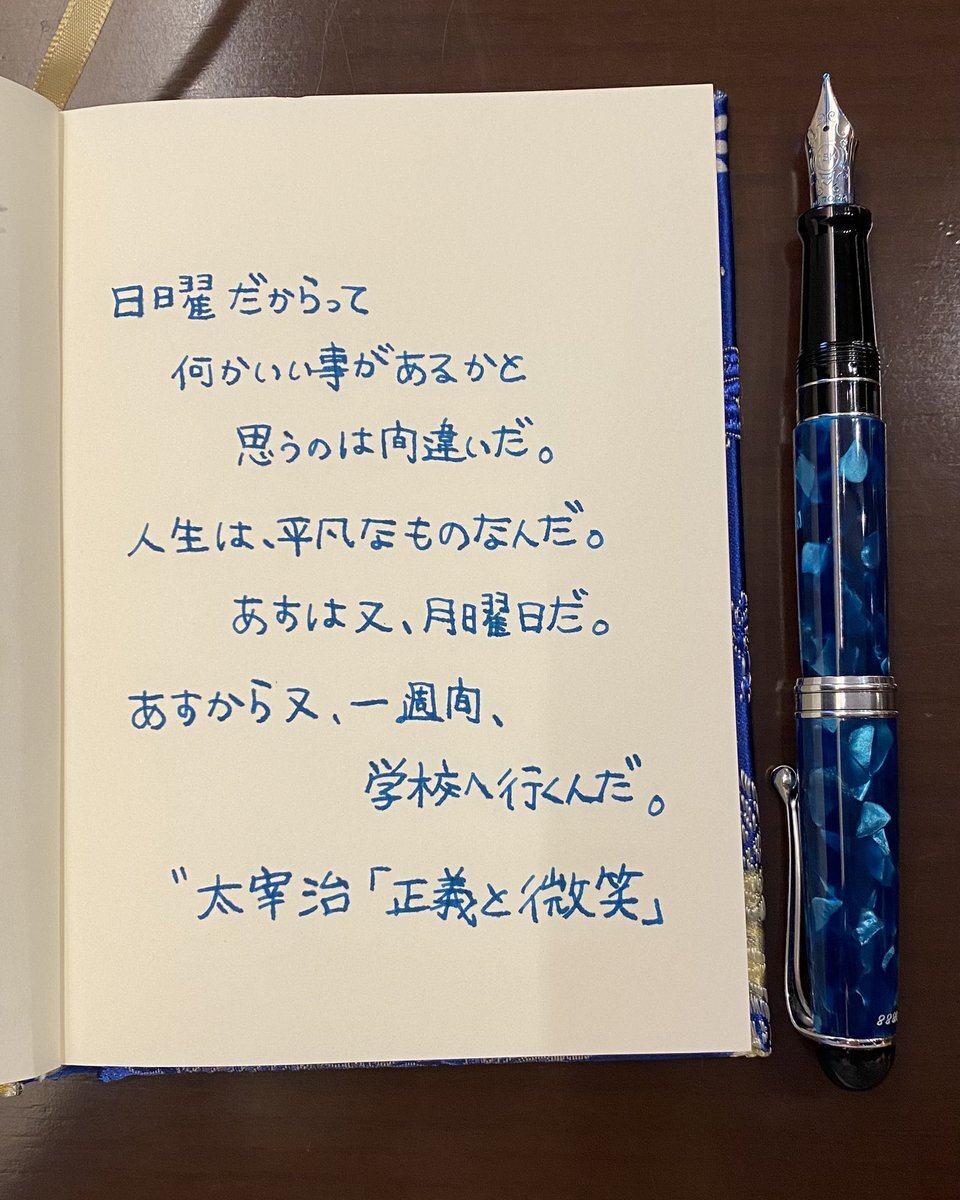 日曜だからって
何かいい事があるかと
思うのは間違いだ。
人生は、平凡なものなんだ。
あすは又、月曜日だ。
あすから又、一週間、
学校へ行くんだ。
〃太宰治「正義と微笑」
888